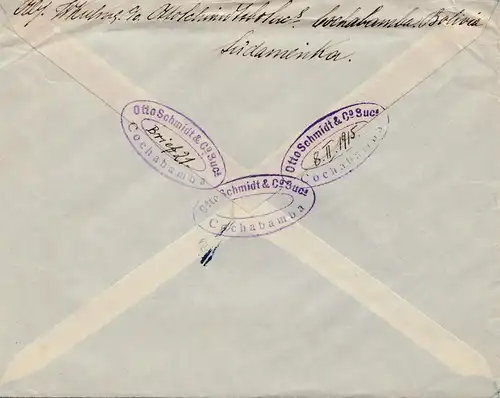 Otto Schmidt & Co Sucs Cochabamba Bolivia
Südamerika.
Otto Schmidt & Cº Sucs
Brief 21
Cochabamba
Otto Schmidt & Cº Sucs
8.II.1915
Cochabamba
Otto Schmidt & Cº Sucs
Cochabamba